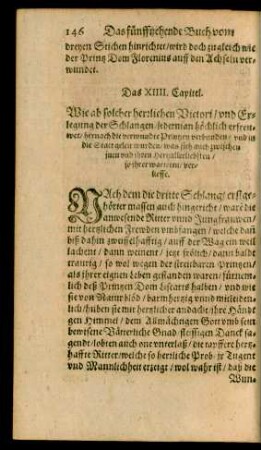 146 Das fünffzehende Buch vom
dreyen Stichen hinrichtet/wird doch zugleich wie
der Prinz Dom Florenius auff den Achseln ver-
wundet.
Das XIIII. Capitel.
Wie ab solcher herrlichen Victori/ vnd Er-
legung der Schlangen jederman höchlich erfreu-
wet/ hernach die verwundte Printzen verbunden/ vnd in
die Statt geleit wurden/ was sich auch zwischen
jnen vnd jhren Hertzallerliebsten/
so jhrer warteten/ ver-
lieffe.
NAch dem die dritte Schlang/ erstge-
hörter massen auch hingericht/ ware die
anwesende Ritter vnnd Jungfrauwen/
mit hertzlichen Frewden vmbfangen/ welche dañ
biß dahin zweiffelhafftig/ auff der Wag ein weil
lachent/ dann weinent/ jetzt frölich/ dann baldt
traurig/ so wol wegen der streitbaren Printzen/
als jhrer eignen Leben gestanden waren/ fürnem-
lich deß Printzen Dom Lisearts halben/ vnd wie
sie von Natur blöd/ barmhertzig vnnd mitleiden-
lich/ huben sie mit hertzlicher andacht/ jhre Händt
gen Himmel/ dem Allmächtigen Gott vmb sein
bewisene Vätterliche Gnad fleissigen Danck sa-
gendt/ lobten auch one vnterlaß/ die tapffere hertz-
haffte Ritter/ welche so herrliche Prob/ jr Tugent
vnd Mannlichheit erzeigt/ wol wahr ist/ daß die
Wun-